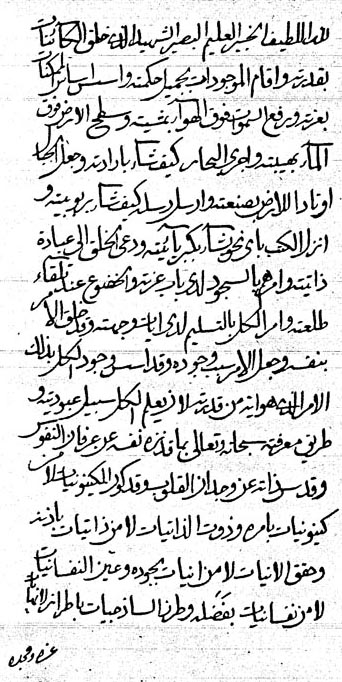 لله اللطيف الخبير العليم البصير الشهيد الذي خلق الكائنات
بقدرته واقام الموجودات بجميل حكمته واسس اساس الممكنات
بعزته ورفع السموات فوق الهوآء بمشيته وسطح الارض فوق
المآء بهيبته واجرى البحار كيف شآء بارادته وجعل الجبال
اوتادا للارض بصنعته وارسل رسله كيف شآء بربوبيته و
انزل الكتب باى نحو شآء بكبريائيته ودعى الخلق الى عبادة
ذاتيته وامرهم بالسجود لدى باب عزته والخضوع عند تلقاء
طلعته وامر الكل بالتسليم لدى ايات وجهته وقد خلق الامر
بنفسه وجعل الامر سبب وجوده وقد اسس وجود الكل بذلك
الامر الذى هو اية من قدرته لان يعلم الكل سبيل عبوديته و
طريق معرفته سبحانه وتعالى بما قد نزه نفسه عن عرفان النفوس
وقدس ذاته عن وجدان القلوب وقد كون الكينونيات لا من
كينونيات بامره وذوت الذاتيات لا من ذاتيات باذنه
وحقق الانيات لا من انيات بجوده وعين النفسانيات
لا من نفسانيات بفضله وطرز الساذجيات باطراز
عزه ومجده